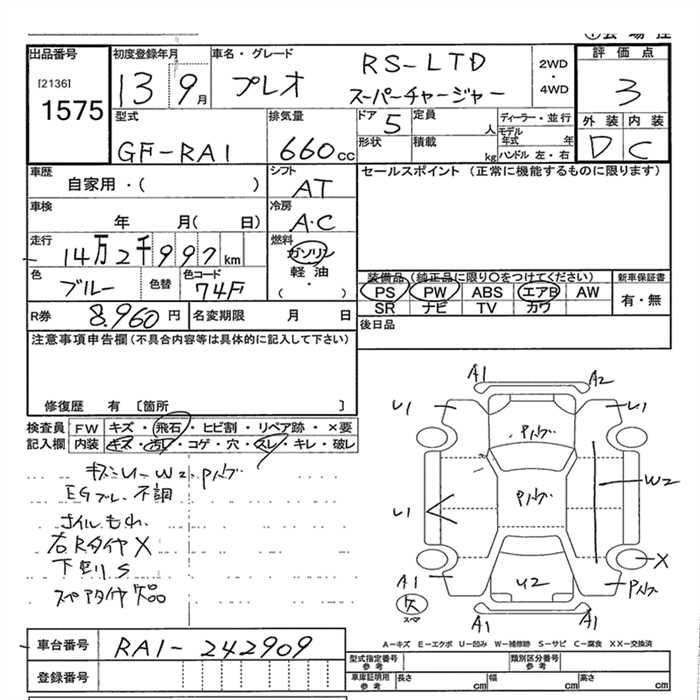 出品番号
[2136]
1575
初度登録年月
13 9月
車名・グレード
プレオ RS-LTD
スーパーチャージャー
2WD
・
4WD
評価点
3
型式
GF-RA1
排気量
660cc
ドア
5
定員
人
形状
積載
kg
ディーラー・並行
モデル年式 年
ハンドル 左・右
外装 内装
D C
車歴
自家用・( )
シフト
AT
セールスポイント (正常に機能するものに限ります)
車検
年 月( 日)
冷房
A・C
走行
14万2千997km
燃料
ガソリン
軽油・
( )
色
ブルー
色替
色コード
74F
装備品 (純正品に限り○をつけてください)
PS PW ABS エアB AW
SR ナビ TV カワ
新車保証書
有・無
R券
8,960円
名変期限
月 日
後日品
注意事項申告欄(不具合内容等は具体的に記入して下さい)
修復歴 有 〔箇所 〕
検査員記入欄
FW キズ・飛石・ヒビ割・リペア跡・×要
内装 キズ・汚れ・コゲ・穴・スレ・キレ・破レ
キズ U W2 Pハゲ
EGブレ、不調
オイルもれ
右Rタイヤ X
下廻り S
スペアタイヤ欠品
A1 A2
U1 U1
Pハゲ
W2
U1 Pハゲ
X
A1 U2 Pハゲ
欠
スペア
A1 A1
車台番号
RA1-242909
登録番号
A－キズ E－エクボ U－凹み W－補修跡 S－サビ C－腐食 XX－交換済
型式指定番号
参考
類別区分番号
参考
車庫証明用
参考
長さ cm
幅 cm
高さ cm